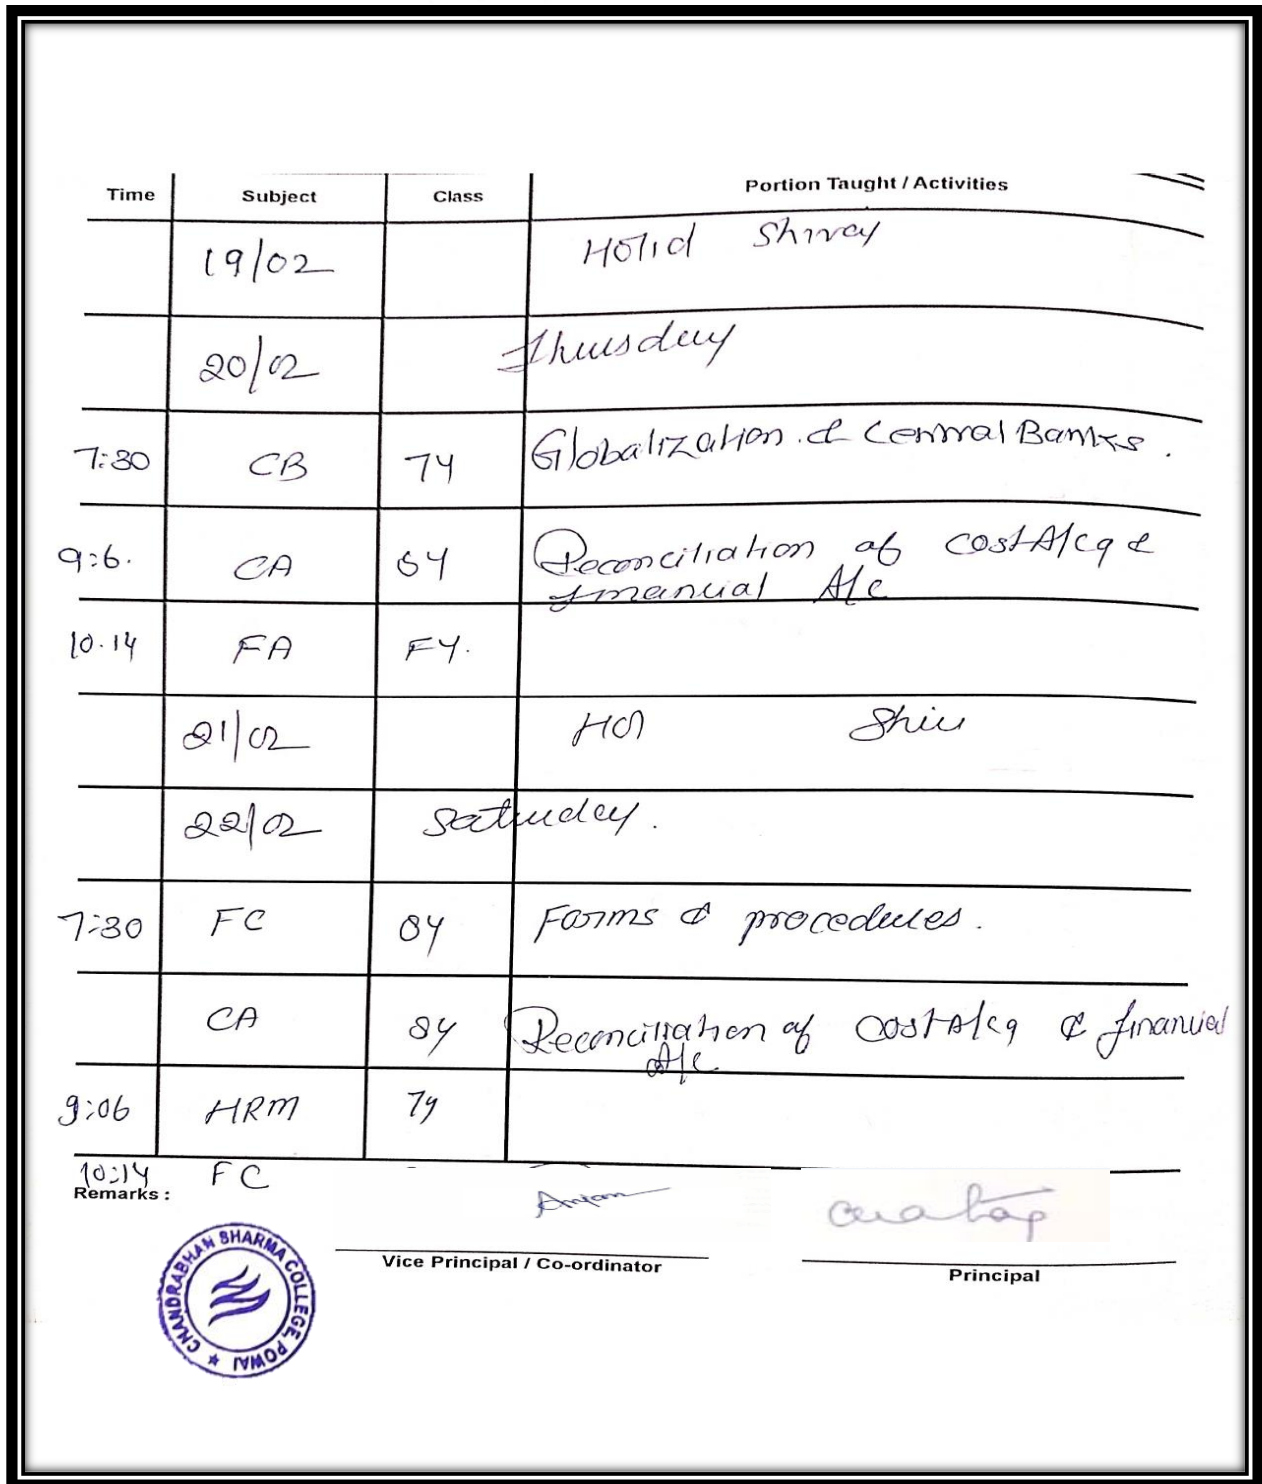 Time Subject Class Portion Taught / Activities
19/02 Holid Shivay
20/02 Thursday
7:30 CB TY Globalization & Central Banks.
9:6. CA SY Reconciliation of cost A/cg &
financial A/c
10.14 FA FY.
21/02 Hol Shiv
22/02 Saturday.
7:30 FC SY Forms & procedures.
CA SY Reconciliation of cost A/cg & financial
A/c
9:06 HRM TY
10:14 FC
Remarks :
Vice Principal / Co-ordinator
Principal
CHANDRABHAN SHARMA COLLEGE, POWAI